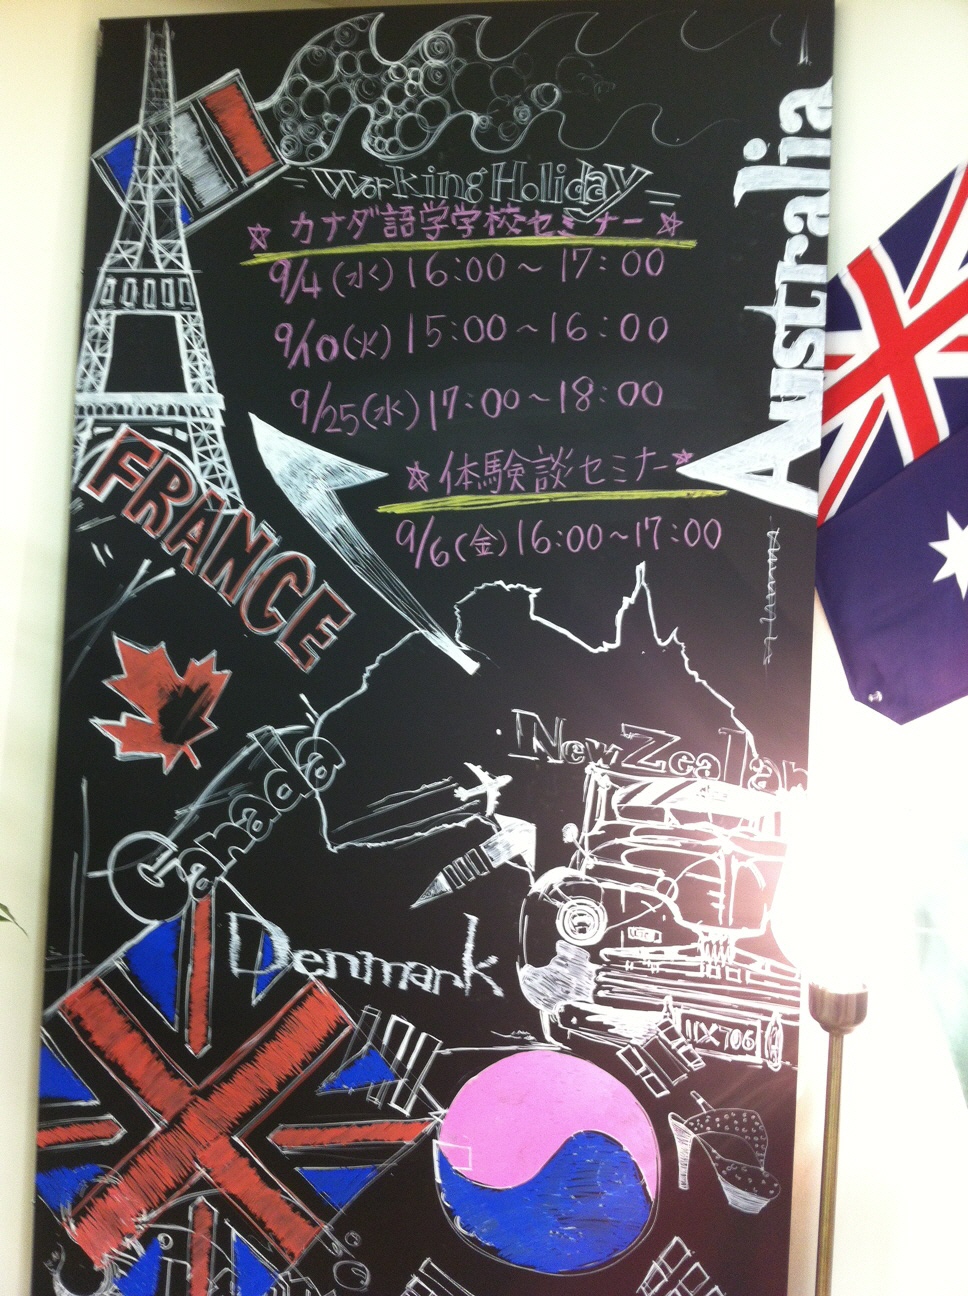 Working Holiday
☆ カナダ語学学校セミナー ☆
9/4 (水) 16:00 ~ 17:00
9/10 (火) 15:00 ~ 16:00
9/25 (水) 17:00 ~ 18:00
☆ 体験談セミナー ☆
9/6 (金) 16:00 ~ 17:00
Australia
FRANCE
Canada
New Zealan
Denmark
UX706